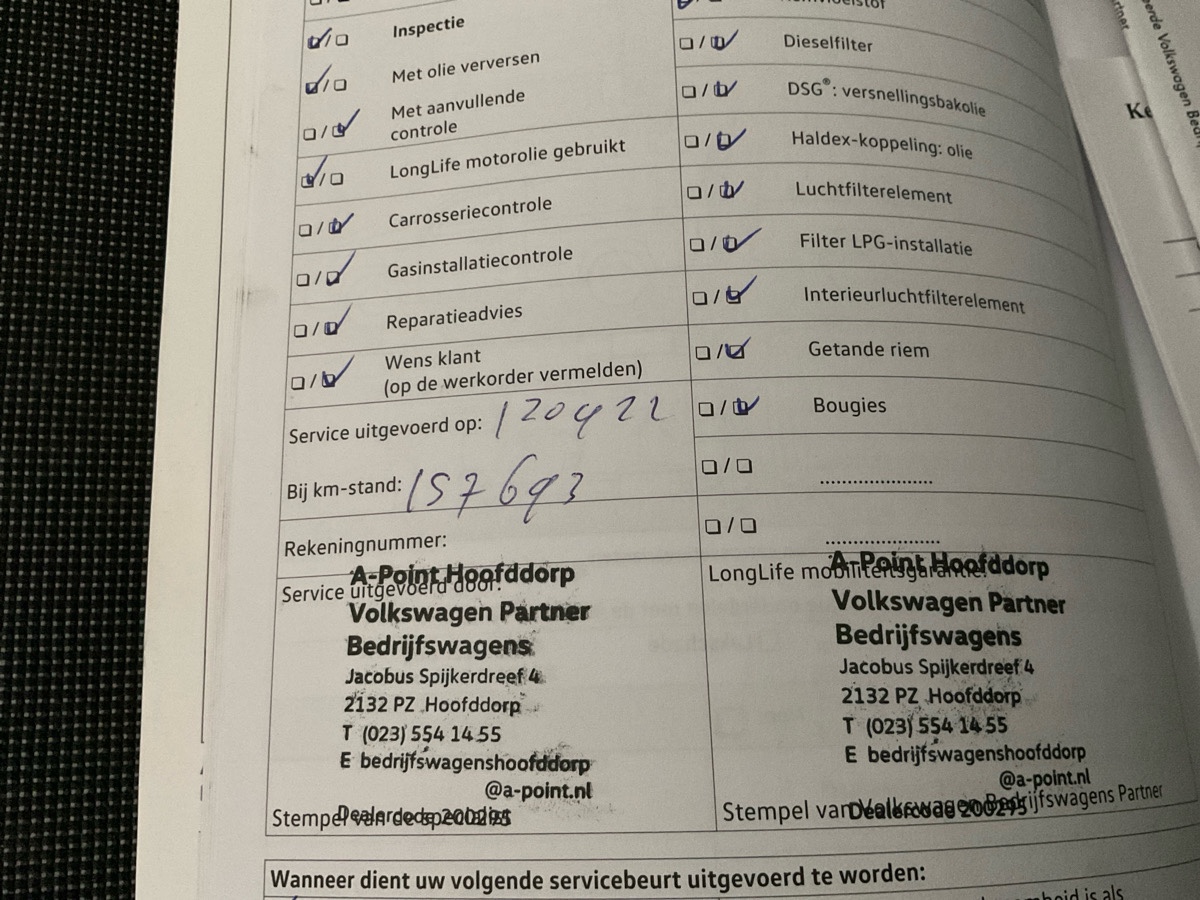 Inspectie
Met olie verversen
Met aanvullende
controle
LongLife motorolie gebruikt
Carrosseriecontrole
Gasinstallatiecontrole
Reparatieadvies
Wens klant
(op de werkorder vermelden)
Service uitgevoerd op: 120922
Bij km-stand: 157693
Rekeningnummer:
Service uitgevoerd door:
A-Point Hoofddorp
Volkswagen Partner
Bedrijfswagens
Jacobus Spijkerdreef 4
2132 PZ Hoofddorp
T (023) 554 14 55
E bedrijfswagenshoofddorp
@a-point.nl
Dealercode 200295
Stempel van de specialist
Dieselfilter
DSG®: versnellingsbakolie
Haldex-koppeling: olie
Luchtfilterelement
Filter LPG-installatie
Interieurluchtfilterelement
Getande riem
Bougies
LongLife mobiliteitsgarantie:
A-Point Hoofddorp
Volkswagen Partner
Bedrijfswagens
Jacobus Spijkerdreef 4
2132 PZ Hoofddorp
T (023) 554 14 55
E bedrijfswagenshoofddorp
@a-point.nl
Dealercode 200295
Stempel van Volkswagen Bedrijfswagens Partner
Wanneer dient uw volgende servicebeurt uitgevoerd te worden:
is als
Volkswagen